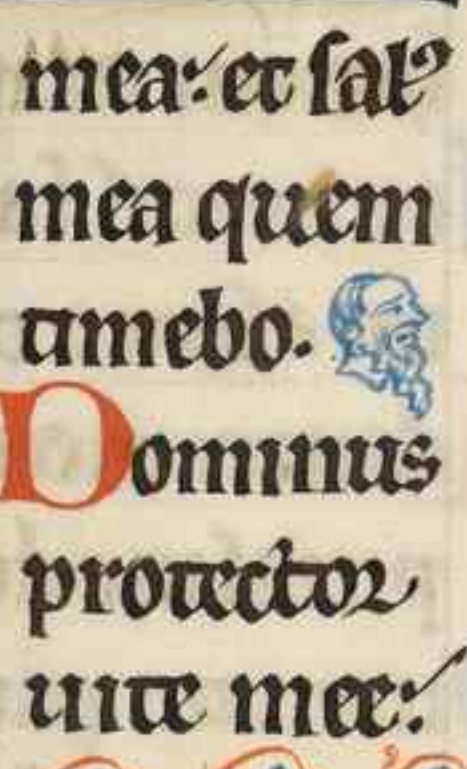 mea: et sal9
mea quem
timebo.
Dominus
protector
uite mee: